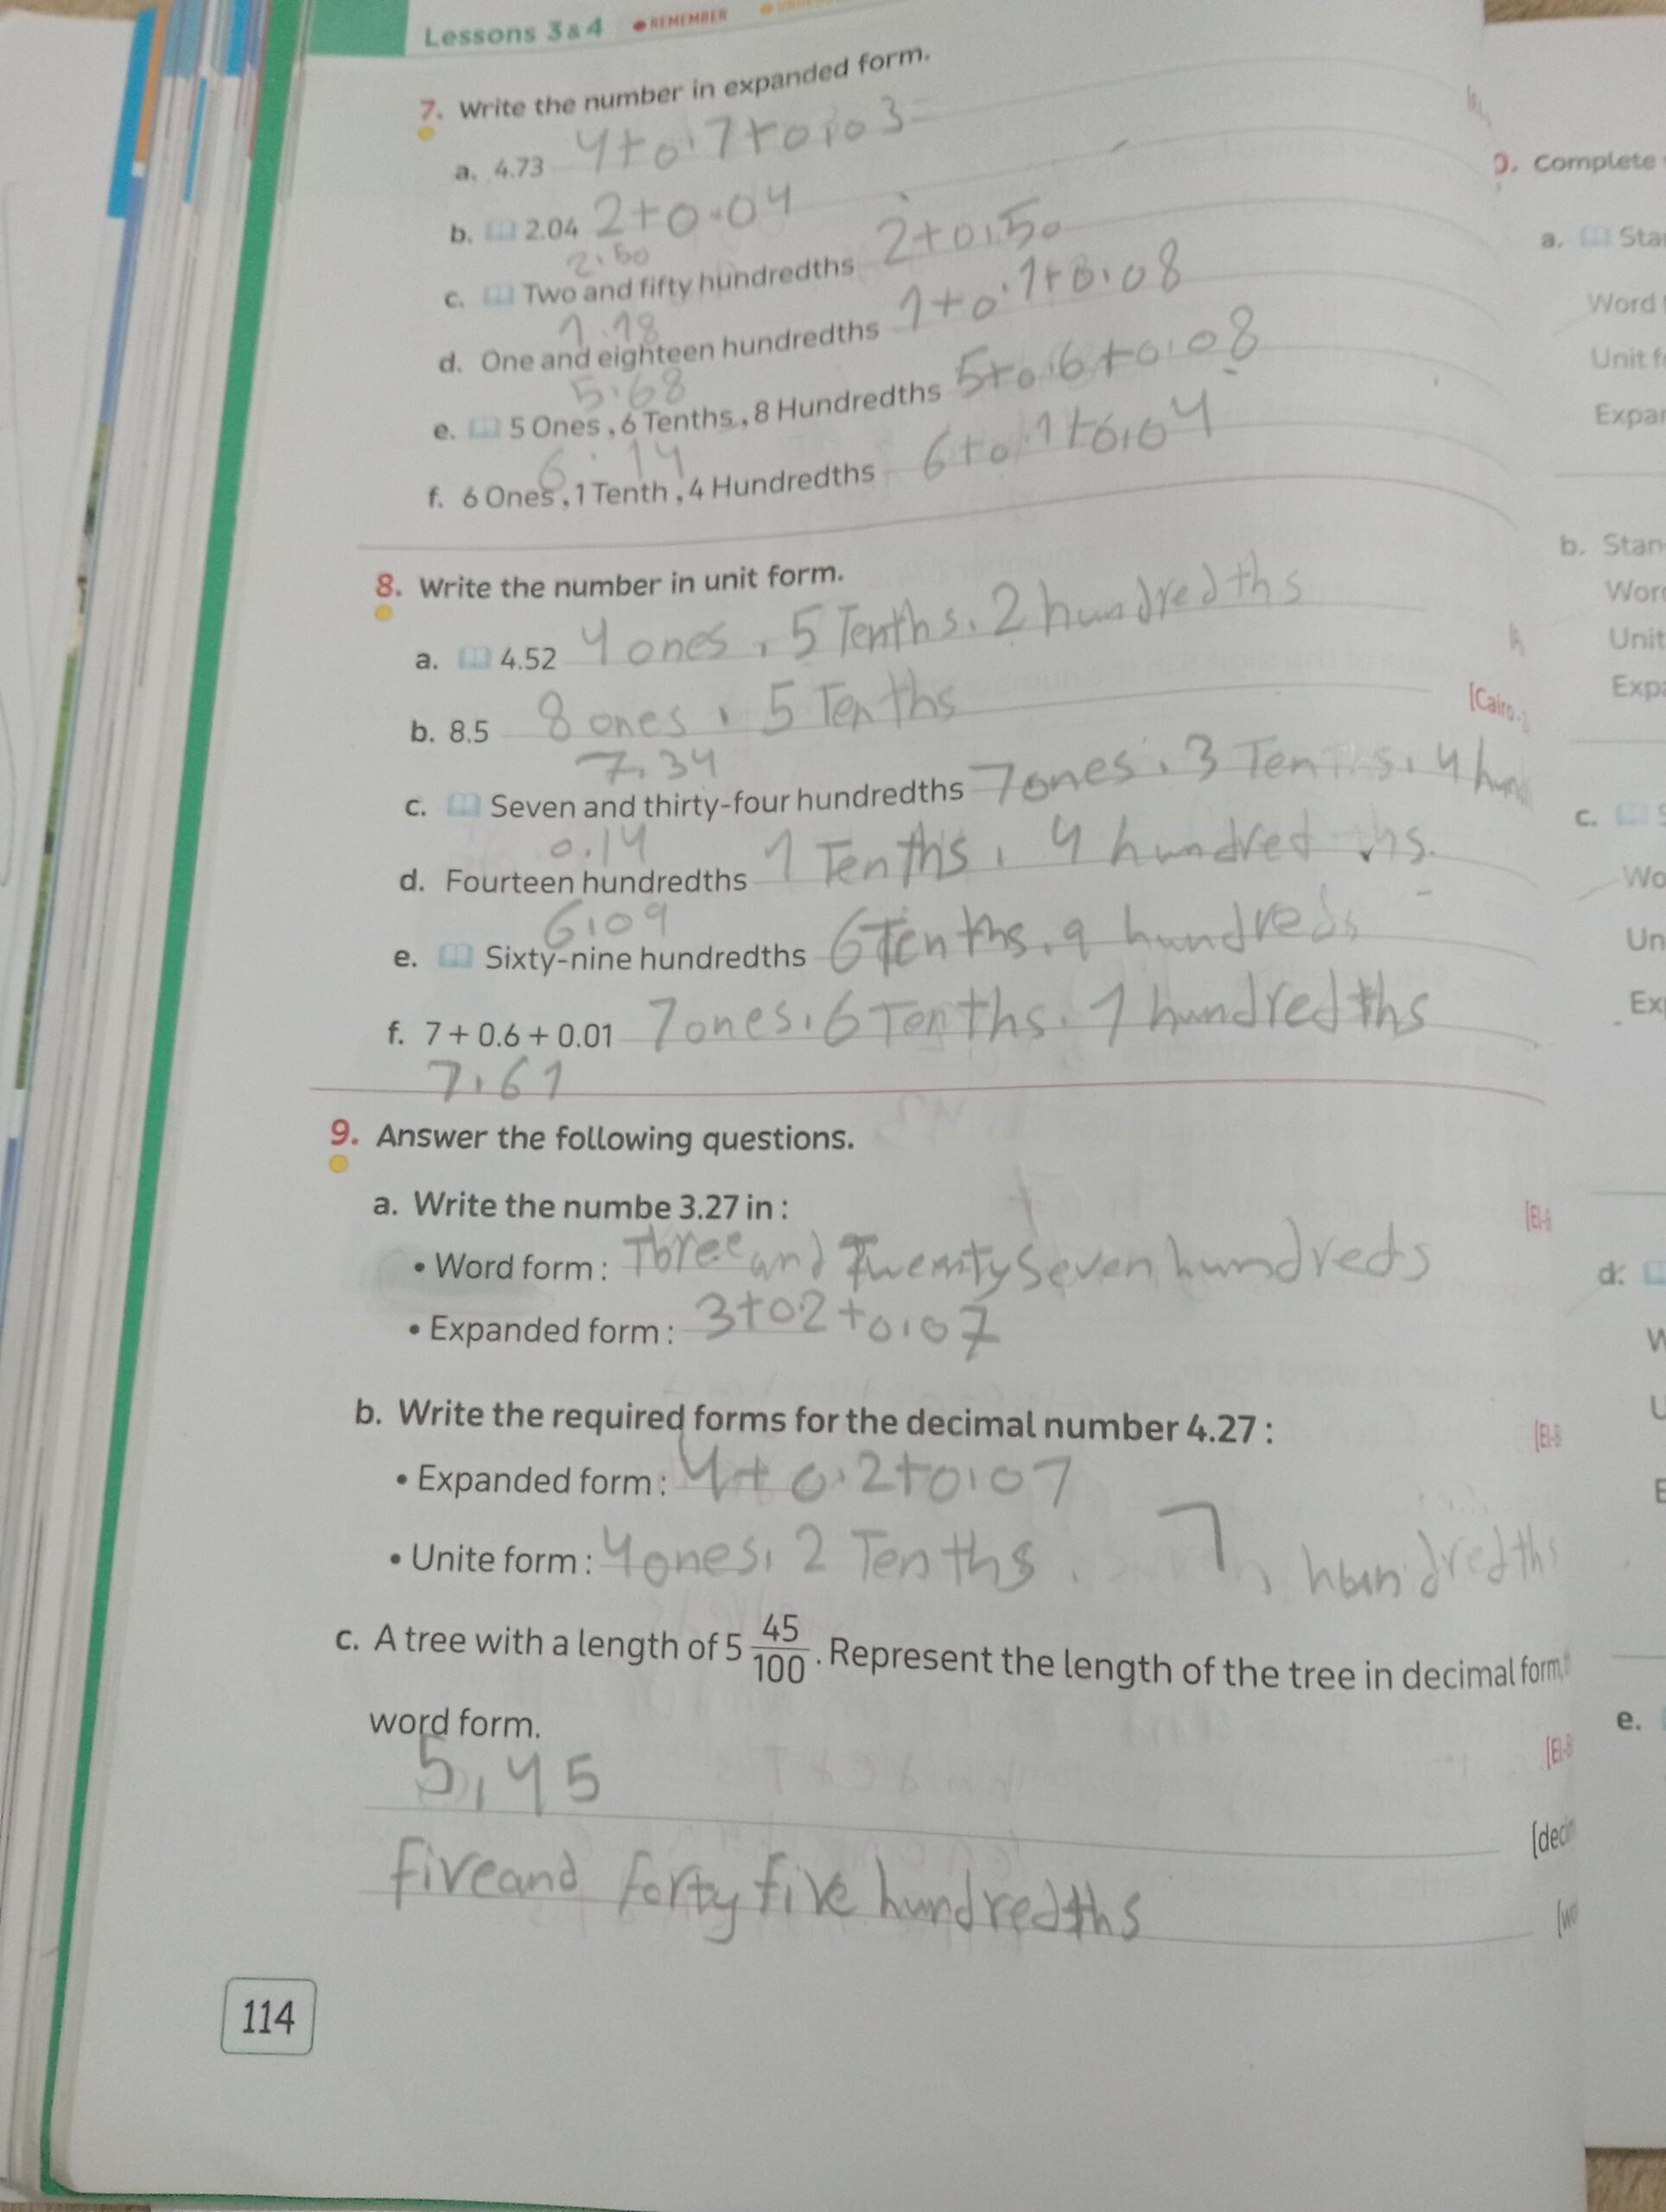 Lessons 3 & 4 REMEMBER
7. Write the number in expanded form.
a. 4.73 4+0.7+0.03=
b. 2.04 2+0.04
2.50
c. Two and fifty hundredths 2+0.50
1.18
d. One and eighteen hundredths 1+0.1+0.08
5.68
e. 5 Ones , 6 Tenths , 8 Hundredths 5+0.6+0.08
6.14
f. 6 Ones , 1 Tenth , 4 Hundredths 6+0.1+0.04
8. Write the number in unit form.
a. 4.52 4 ones , 5 Tenths , 2 hundredths
b. 8.5 8 ones , 5 Tenths
[Cairo
7.34
c. Seven and thirty-four hundredths 7 ones , 3 Tenths , 4 hund
0.14
d. Fourteen hundredths 1 Tenths , 4 hundredths.
6.09
e. Sixty-nine hundredths 6 Tenths , 9 hundreds
f. 7 + 0.6 + 0.01 7 ones , 6 Tenths , 1 hundredths
7.61
9. Answer the following questions.
a. Write the numbe 3.27 in :
• Word form : Three and Twenty Seven hundreds
• Expanded form : 3+0.2+0.07
b. Write the required forms for the decimal number 4.27 :
• Expanded form : 4+0.2+0.07
• Unite form : 4 ones, 2 Tenths , 7 , hundredths
c. A tree with a length of 5 45/100 . Represent the length of the tree in decimal form,
word form.
5.45
five and forty five hundredths
114
Complete
a. Sta
Word
Unit f
Expa
b. Stan
Wor
Unit
Exp
c.
Wo
Un
Ex
d.
e.